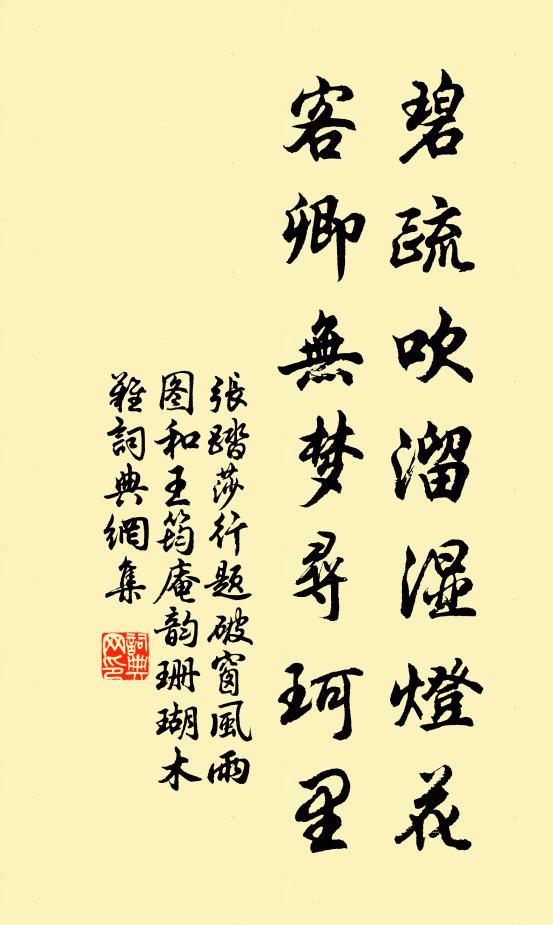 碧疏吹溜湿燈花
客卿無梦尋珂里
張踏莎行题破窗風雨
图和王筠庵韵珊瑚木
難詞典網集
詞典